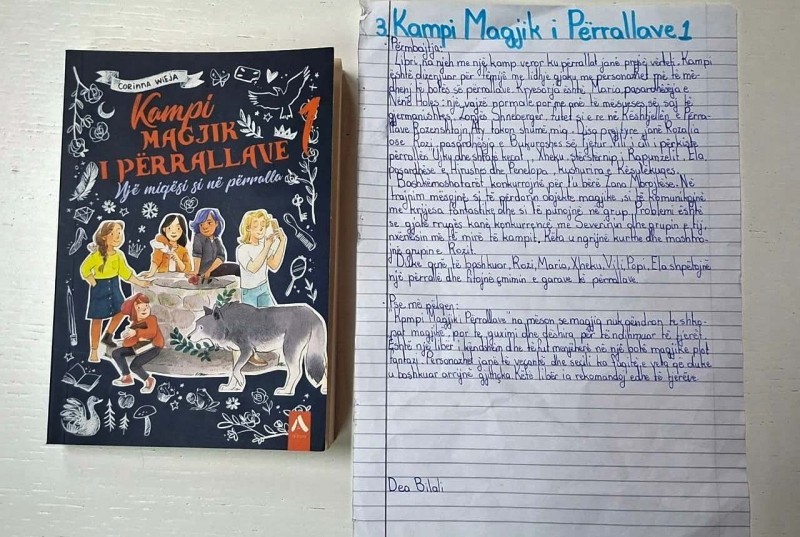 CORINNA WIEJA
Kampi
MAGJIK
I PËRRALLAVE
1
Një miqësi si në përralla
3. Kampi Magjik i Përrallave 1
Përmbajtja:
Libri na njeh me një kamp veror ku përrallat janë prej vërteti. Kampi
është për fëmijë me lidhje gjaku me personazhet më të më-
dhenj të botës së përrallave. Kryesorja është Maria, pasardhësja e
Nënë Holes; një vajzë normale por me anë të mësueses së saj të
gjermanishtes, Zonjës Shneberger, futet si e re në Kështjellën e Përra-
llave Rozenshtajn. Aty takon shumë miq. Disa prej tyre janë Rozalia
ose Rozi, pasardhësja e Bukuroshes së Fjetur, Vili, i cili i përkiste
përrallës Ujku dhe shtatë kecat, Xheku, stërstërnip i Rapunzelit, Ela,
pasardhëse e Hirushes dhe Penelopa, kushurira e Kësulëkuqes.
Bashkëmoshatarët konkurrojnë për t'u bërë Zana Mbrojtëse. Në
trajnim mësojnë si të përdorin objekte magjike, si të komunikojnë
me krijesa fantastike dhe si të punojnë në grup. Problemi është
se gjatë rrugës kanë konkurrencë me Severinin dhe grupin e tij,
nxënësin më të mirë të kampit. Këta u ngrijnë kurthe dhe mashtro-
jnë grupin e Rozit.
Duke qenë të bashkuar, Rozi, Maria, Xheku, Vili, Pepi, Ela shpëtojnë
një përrallë dhe fitojnë çmimin e garave të përrallave.
Pse më pëlqen:
"Kampi Magjik i Përrallave" na mëson se magjia nuk qëndron te shko-
pat magjikë, por te guximi dhe dëshira për të ndihmuar të tjerët.
Është një libër i këndshëm dhe të fut menjëherë në një botë magjike plot
fantazi. Personazhet janë të veçantë dhe secili ka fuqitë e veta që duke
u bashkuar arrijnë gjithçka. Këtë libër ia rekomandoj edhe të tjerëve.
Dea Bilali